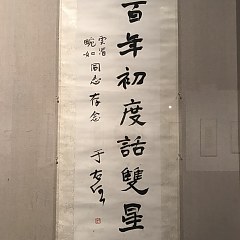 百年初度話雙星
雲
畹如同志存念
于右任